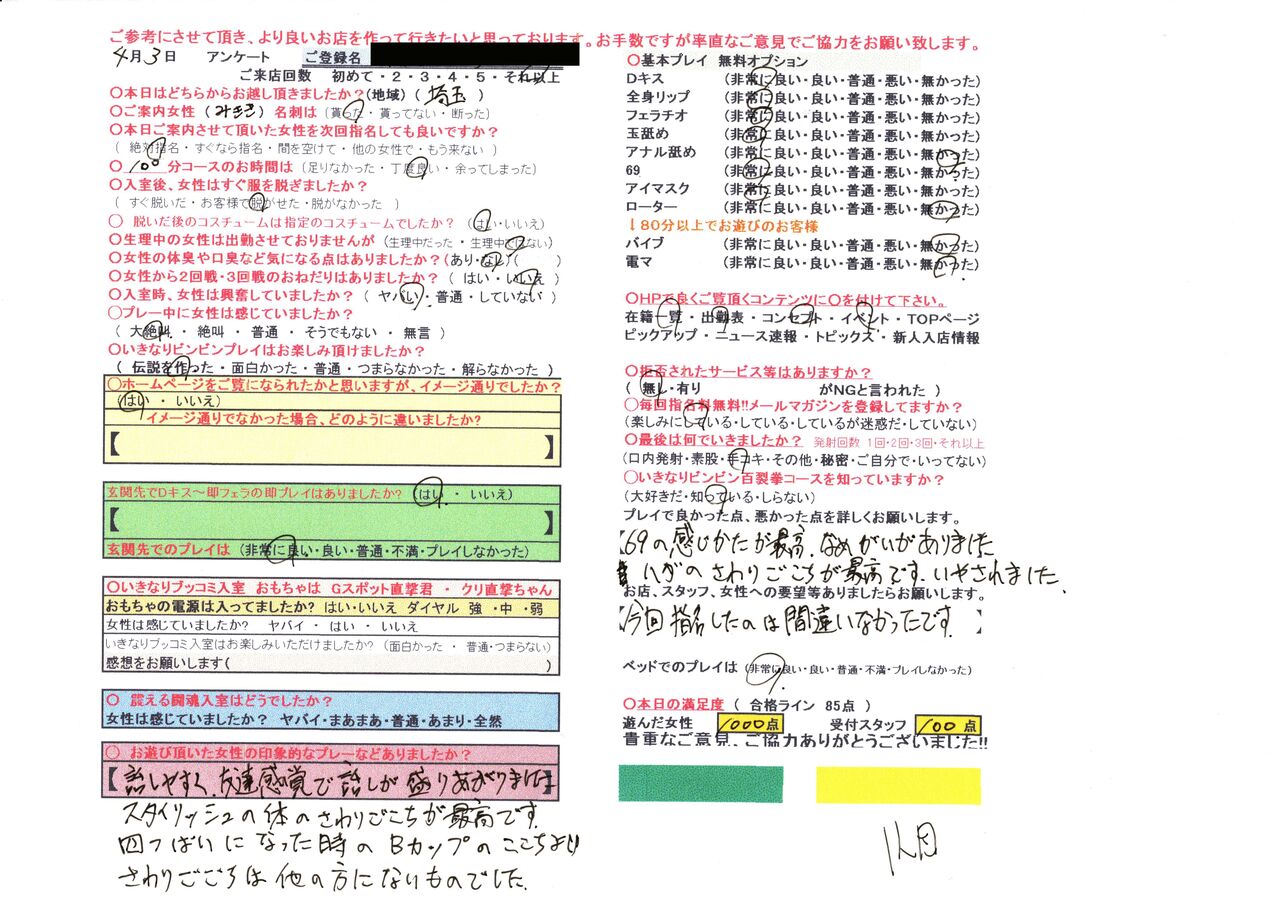 ご参考にさせて頂き、より良いお店を作って行きたいと思っております。お手数ですが率直なご意見でご協力をお願い致します。
4月3日 アンケート ご登録名
ご来店回数 初めて・2・3・4・5・それ以上
〇本日はどちらからお越し頂きましたか?(地域)( 埼玉 )
〇ご案内女性 (みさき) 名刺は(貰った・貰ってない・断った)
〇本日ご案内させて頂いた女性を次回指名しても良いですか?
( 絶対指名・すぐなら指名・間を空けて・他の女性で・もう来ない )
〇 100 分コースのお時間は (足りなかった・丁度良い・余ってしまった)
〇入室後、女性はすぐ服を脱ぎましたか?
( すぐ脱いだ・お客様で脱がせた・脱がなかった )
〇 脱いだ後のコスチュームは指定のコスチュームでしたか? (はい・いいえ)
〇生理中の女性は出勤させておりませんが (生理中だった・生理中ではない)
〇女性の体臭や口臭など気になる点はありましたか?(あり・なし)( )
〇女性から2回戦・3回戦のおねだりはありましたか? ( はい・いいえ )
〇入室時、女性は興奮していましたか? ( ヤバい・普通・していない )
〇プレー中に女性は感じていましたか?
( 大絶叫・絶叫・普通・そうでもない・無言 )
〇いきなりビンビンプレイはお楽しみ頂けましたか?
( 伝説を作った・面白かった・普通・つまらなかった・解らなかった )
〇ホームページをご覧になられたかと思いますが、イメージ通りでしたか?
(はい ・ いいえ)
イメージ通りでなかった場合、どのように違いましたか?
【 】
玄関先でDキス～即フェラの即プレイはありましたか? (はい ・ いいえ)
【 】
玄関先でのプレイは (非常に良い・良い・普通・不満・プレイしなかった)
〇いきなりブッコミ入室 おもちゃは Gスポット直撃君 ・ クリ直撃ちゃん
おもちゃの電源は入ってましたか? はい・いいえ ダイヤル 強 ・中 ・弱
女性は感じていましたか? ヤバイ ・ はい ・ いいえ
いきなりブッコミ入室はお楽しみいただけましたか? (面白かった ・ 普通・つまらない)
感想をお願いします( )
〇 震える闘魂入室はどうでしたか?
女性は感じていましたか? ヤバイ・まあまあ・普通・あまり・全然
〇 お遊び頂いた女性の印象的なプレーなどありましたか?
【話しやすく、友達感覚で話しが盛りあがりました】
スタイリッシュの体のさわりごこちが最高です。
四つばいになった時のBカップのここちより
さわりごごちは他の方にないものでした。
〇基本プレイ 無料オプション
Dキス (非常に良い・良い・普通・悪い・無かった)
全身リップ (非常に良い・良い・普通・悪い・無かった)
フェラチオ (非常に良い・良い・普通・悪い・無かった)
玉舐め (非常に良い・良い・普通・悪い・無かった)
アナル舐め (非常に良い・良い・普通・悪い・無かった)
69 (非常に良い・良い・普通・悪い・無かった)
アイマスク (非常に良い・良い・普通・悪い・無かった)
ローター (非常に良い・良い・普通・悪い・無かった)
↓80分以上でお遊びのお客様
バイブ (非常に良い・良い・普通・悪い・無かった)
電マ (非常に良い・良い・普通・悪い・無かった)
〇HPで良くご覧頂くコンテンツに〇を付けて下さい。
在籍一覧・出勤表・コンセプト・イベント・TOPページ
ピックアップ・ニュース速報・トピックス・新人入店情報
〇拒否されたサービス等はありますか?
( 無し・有り がNGと言われた )
〇毎回指名料無料!!メールマガジンを登録してますか?
(楽しみにしている・している・しているが迷惑だ・していない)
〇最後は何でいきましたか? 発射回数 1回・2回・3回・それ以上
(口内発射・素股・手コキ・その他・秘密・ご自分で・いってない)
〇いきなりビンビン百裂拳コースを知っていますか?
(大好きだ・知っている・しらない)
プレイで良かった点、悪かった点を詳しくお願いします。
69の感じかたが最高、なめがいがありました
ハダのさわりごこちが最高です。いやされました。
お店、スタッフ、女性への要望等ありましたらお願いします。
今回指名したのは間違いなかったです。
ベッドでのプレイは (非常に良い・良い・普通・不満・プレイしなかった)
〇本日の満足度 ( 合格ライン 85点 )
遊んだ女性 1000点 受付スタッフ 100点
貴重なご意見、ご協力ありがとうございました!!